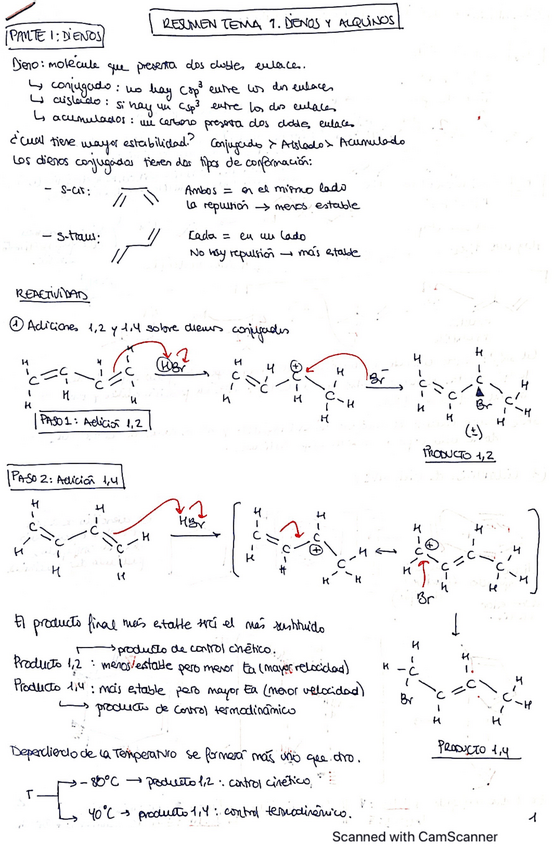 RESUMEN TEMA 1. DIENOS Y ALQUINOS
PARTE 1: DIENOS
Dieno: molécula que presenta dos dobles enlaces.
↳ conjugado: no hay Csp³ entre los dos enlaces
↳ aislado: si hay un Csp³ entre los dos enlaces
↳ acumulados: un carbono presenta dos dobles enlaces
¿Cual tiene mayor estabilidad? Conjugado > Aislado > Acumulado
Los dienos conjugados tienen dos tipos de conformación:
- S-cis:
Ambos = en el mismo lado
la repulsión → menos estable
- S-trans:
Cada = en un lado
No hay repulsión → más estable
REACTIVIDAD
① Adiciones 1,2 y 1,4 sobre dienos conjugados
HBr
Br⁻
Br
(±)
PASO 1: Adición 1,2
PRODUCTO 1,2
PASO 2: Adición 1,4
HBr
Br
El producto final más estable será el más sustituido
→ producto de control cinético.
Producto 1,2: menos estable pero menor Ea (mayor velocidad)
Producto 1,4: más estable pero mayor Ea (menor velocidad)
↳ producto de control termodinámico
Br
PRODUCTO 1,4
Dependiendo de la Temperatura se formará más uno que otro.
T
-80°C → producto 1,2: control cinético
40°C → producto 1,4: control termodinámico.
1
Scanned with CamScanner